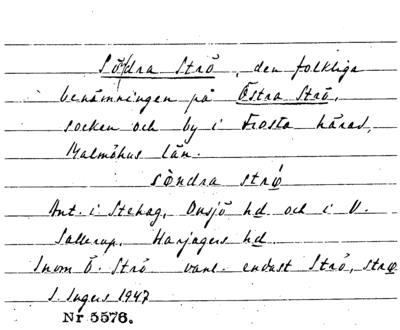 Södra Strö, den folkliga
benämningen på Östra Strö,
socken och by i Frosta härad,
Malmöhus län.
söndra strø
Ant. i Stehag, Onsjö hd och i V.
Sallerup, Harjagers hd.
Inom Ö. Strö vanl. endast Strö, strø
I. Ingers 1947
Nr 5576.